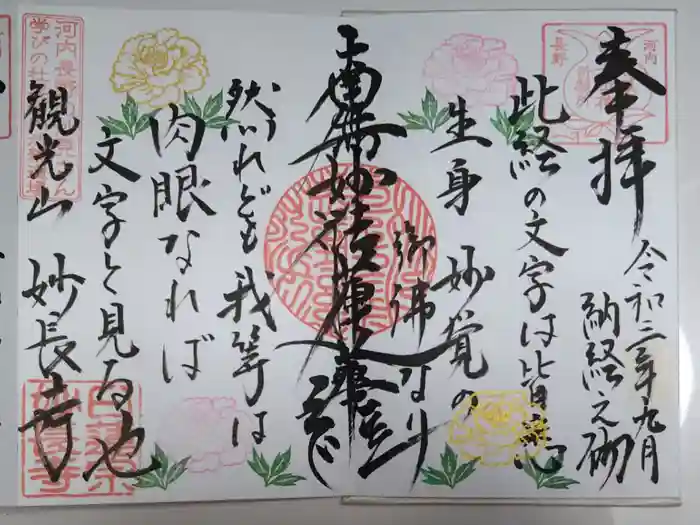 奉拝
令和三年九月
納経之砌
此経の文字は皆悉
生身妙覚の
御佛なり
南無妙法蓮華経
然れども我等は
肉眼なれば
文字と見る也
観光山 妙長寺
河内
長野
河内長野
学びの
日蓮宗
妙長寺